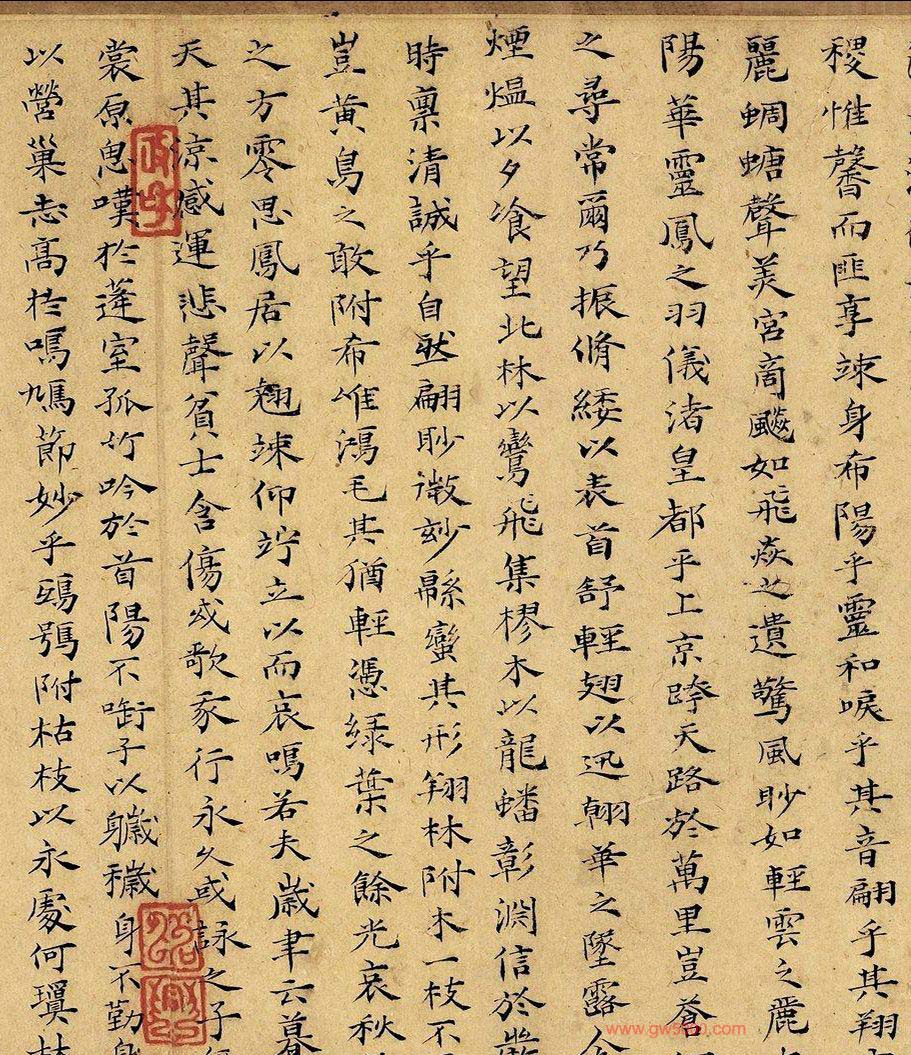 稷惟馨而匪享竦身布陽乎靈和唳乎其音翩乎其翔
麗蜩螗聲美宮商飈如飛焱之遺驚風眇如輕雲之麗
陽華靈鳳之羽儀渚皇都乎上京跨天路於萬里豈蒼
之尋常爾乃振脩緌以表首舒輕翅以迅翰華之墜露
煙熅以夕飡望北林以鸞飛集樛木以龍蟠彰淵信於
時禀清誠乎自然翩眇微玅緜蠻其形翔林附木一枝不
豈黃鳥之敢附希唯鴻毛其猶輕憑綠葉之餘光哀秋
之方零思鳳居以翹竦仰竚立以而哀鳴若夫歲聿云暮
天其涼感運悲聲貧士含傷或歌我行永久或詠之子
裳原思嘆於蓬室孤竹吟於首陽不銜子以穢身不勤
以營巢志高於鳲鳩節妙乎鴟鴞附枯枝以永處何
www.gw5 0.com